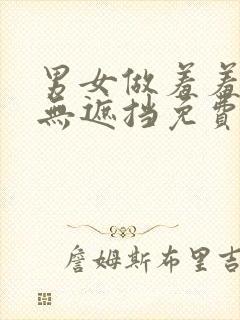 男女做羞羞
無遮挡免費
詹姆斯布里吉